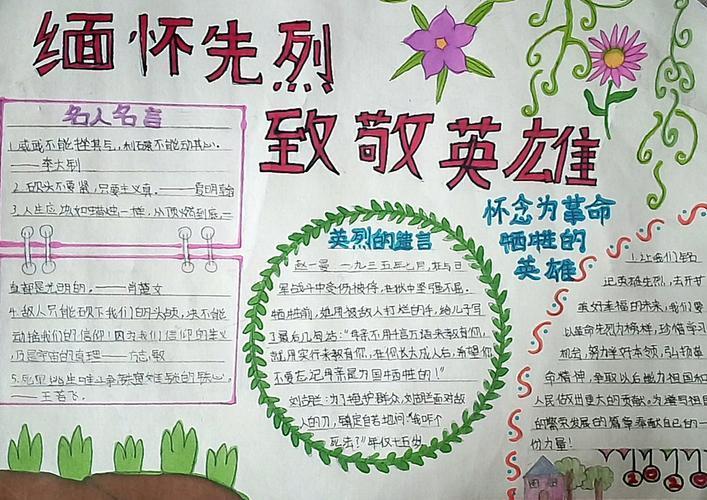 缅怀先烈
致敬英雄
名人名言
1.威武不能挫其气，利禄不能动其心。
——李大钊
2.砍头不要紧，只要主义真。——夏明翰
3.人生应该如蜡烛一样，从顶燃到底，一
直都是光明的。——肖楚女
4.敌人只能砍下我们的头颅，决不能
动摇我们的信仰！因为我们信仰的主义
乃是宇宙的真理——方志敏
——王若飞。
英烈的遗言
赵一曼 一九三五年七月，在与日
军战斗中受伤被俘，在狱中坚强不屈。
牺牲前，她用被敌人打烂的手，给儿子写
了最后几句话：“母亲不用千言万语来教育你，
就用实行来教育你。在你长大成人后，希望你
不要忘记母亲是为国牺牲的！”
刘胡兰：为了掩护群众，刘胡兰面对敌
人的刀，镇定自若地问：“我咋个
死法？”年仅十五岁
怀念为革命
牺牲的
英雄
！让我们铭
记英雄先烈，去开扩
美好幸福的未来，我们要
以革命先烈为榜样，珍惜学习
机会，努力学好本领，弘扬革
命精神，争取以后能为祖国和
人民做出更大的贡献。为推动祖国
的繁荣发展的篇章奉献自己的一
份力量！